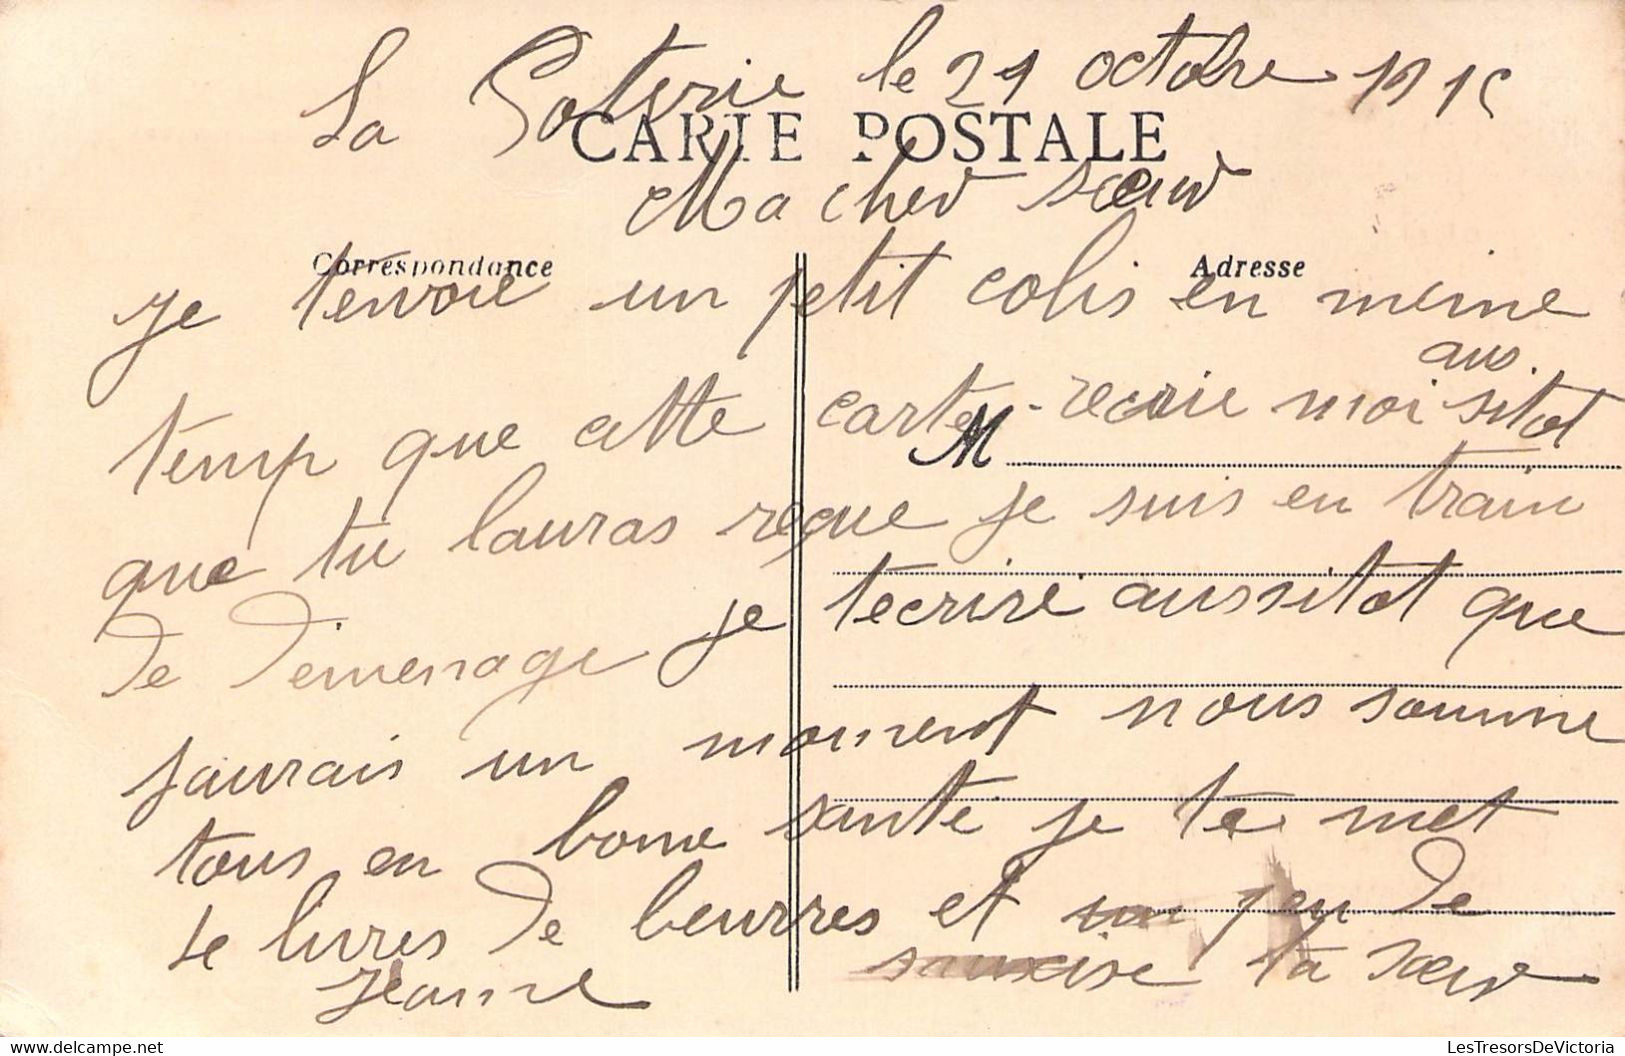 La Poterie le 21 octobre 1915
CARTE POSTALE
Ma cher sœur
Correspondance
Adresse
je tenvoie un petit colis en meme
temp que cette carte recrie moi aussitot
M
que tu lauras reçue je suis en train
de demenage je tecrire aussitot que
jaurais un moment nous somme
tous en bonne sante je te met
livres de beurres et un peu de
ta sœur
Jeanne
LesTresorsDeVictoria
LesTresorsDeVictoria.com